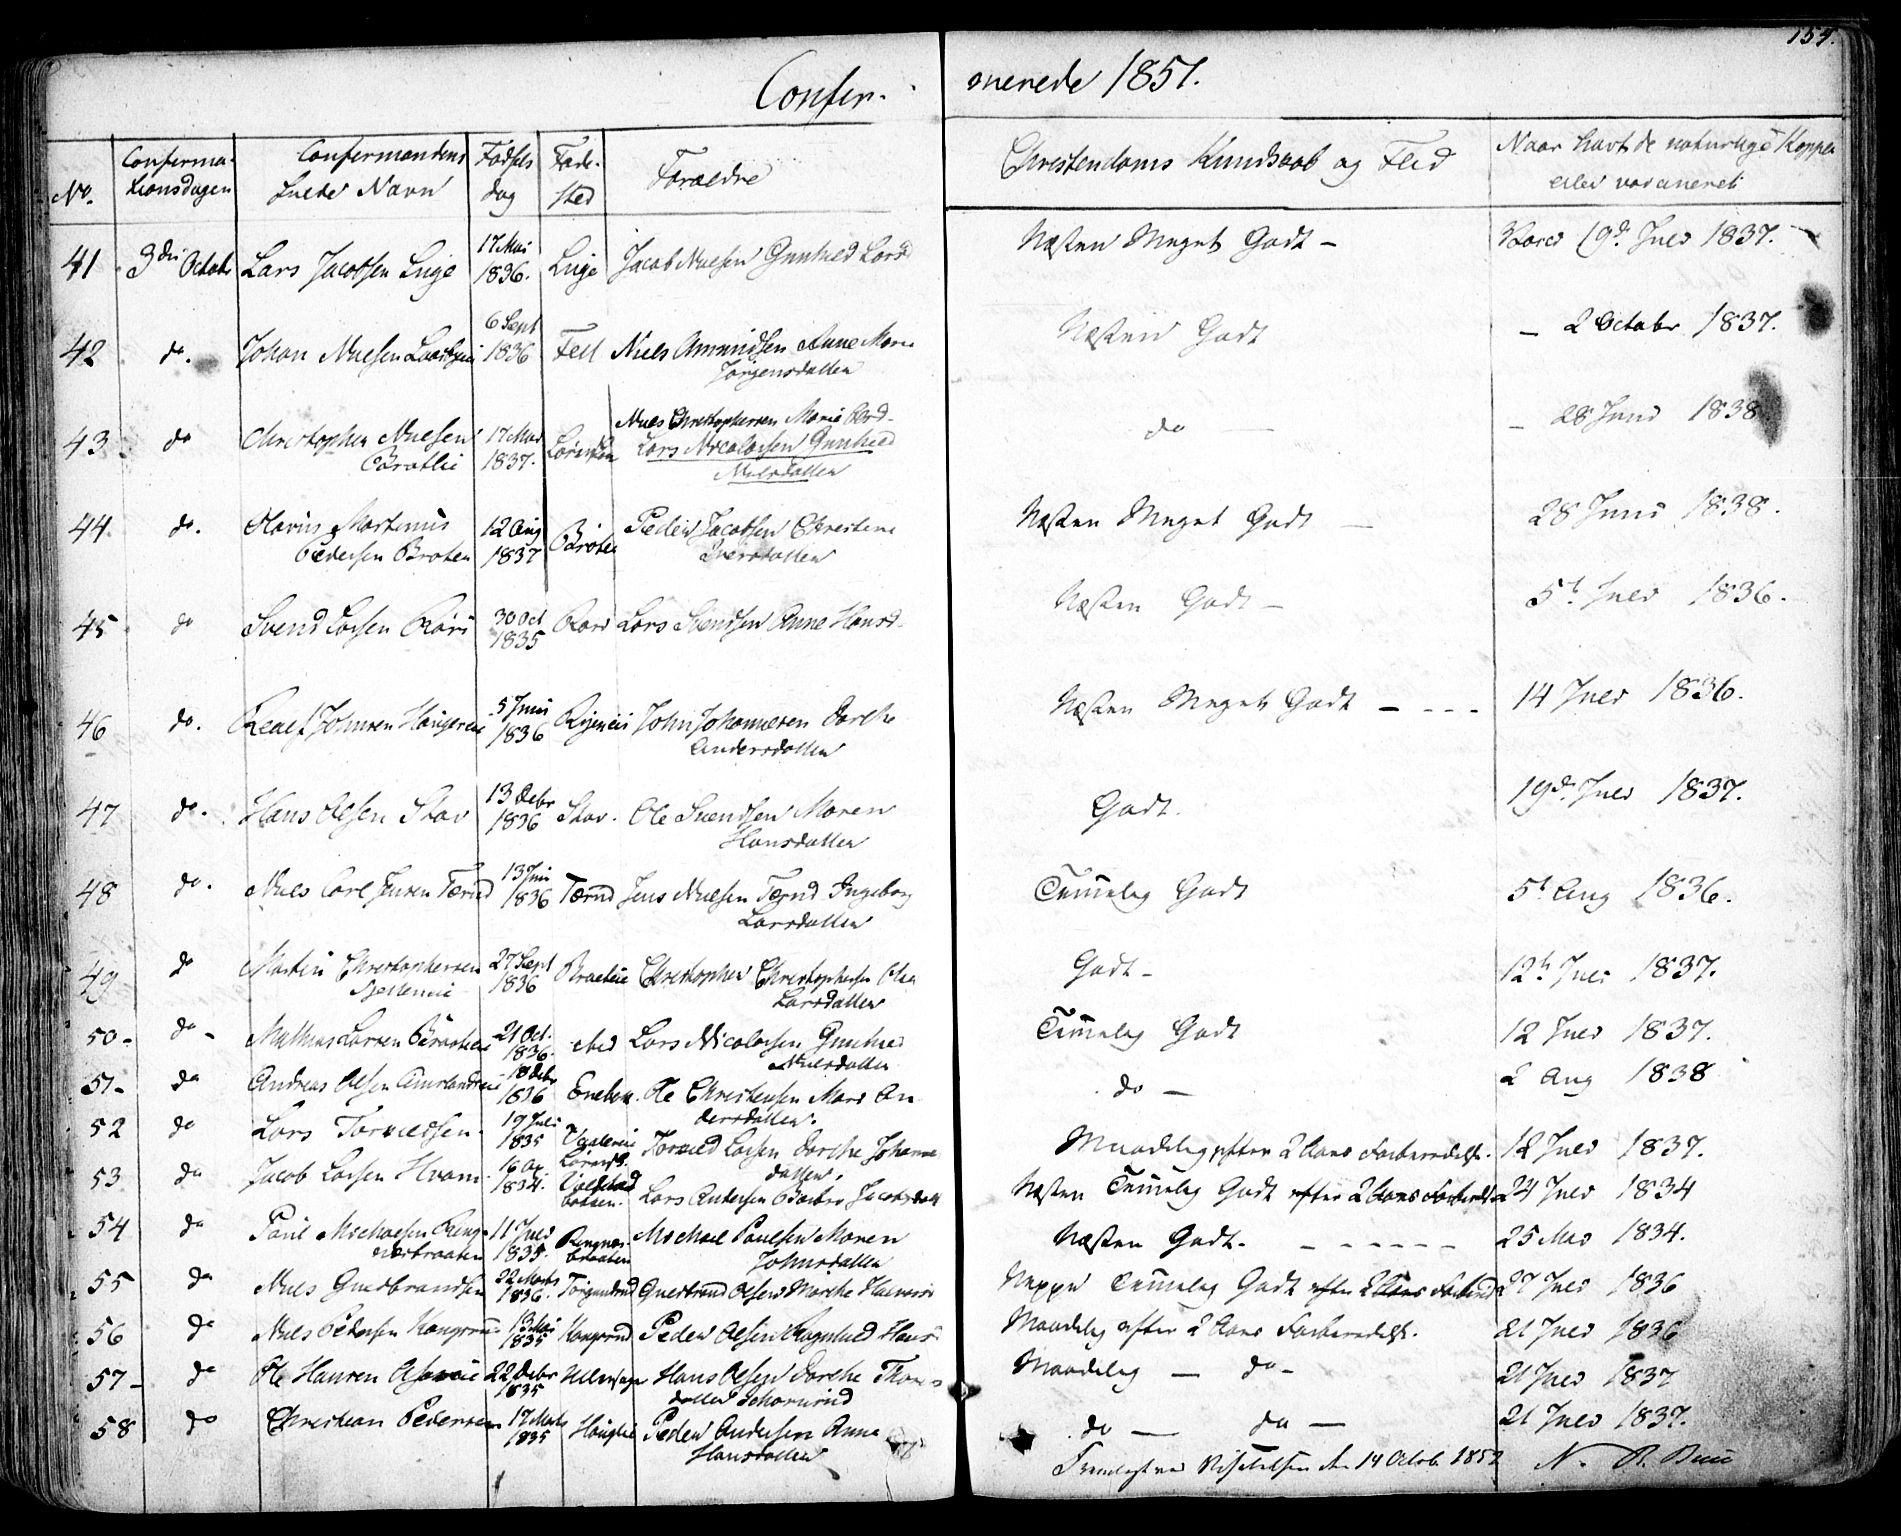 154.
Confir- merede 1851.
No. Confirma- tionsdagen Confirmandens Fulde Navn Fødsels dag Føde- sted Forældre Christendoms Kundskab og Flid Naar havt de naturlige Kopper eller vaccineret
41 3die Octob Lars Jacobsen Linge 17 Mai 1836. Linge Jacob Nielsen Gunhild Larsd Næsten Meget Godt - 19d. Juli 1837.
42 do. Johan Nielsen 6 Sept 1836 Fell Niels Amundsen Anne Marie Jörgensdatter Næsten Godt - 2 Octobr 1837.
43 do Christopher Nielsen Bratlie 17 Mai 1837. Niels Christophersen Marie Lars Nicolaisen Gunhild Nielsdatter do - 28 Juni 1838
44 do. Olavus Martinus Pedersen Broten 12 Aug 1837 Broten Peder Jacobsen Christine Iversdatter Næsten Meget Godt - 28 Juni 1838.
45 do Svend Larsen Röri 30 Oct 1835 Röri Lars Svendsen Anne Hansd- Næsten Godt - 5t Juli 1836.
46 do. Johnsen 5 Juni 1836 John Johannesen Dorthe Andersdatter Næsten Meget Godt - - - - 14 Juli 1836.
47 do. Hans Olsen Stav 13 Debr 1836 Stav. Ole Svendsen Maren Hansdatter Godt. 19d. Juli 1837.
48 do. Niels Carl Jensen Tærud 13 Juni 1836 Tærud Jens Nielsen Tærud Ingeborg Larsdatter Temmelig Godt 5t Aug 1836.
49 do Martin Christophersen 27 Sept 1836 Christopher Christophersen Larsdatter Godt - 12te Juli 1837.
50- do - Mathias Larsen 21 Oct. 1836. ibid Lars Nicolaisen Gunhild Nielsdatter Temmelig Godt 12 Juli 1837.
51- do Andreas Olsen 18 Debr 1836 Ole Christensen Mari An dersdatter. do - 2 Aug 1838
52 do Lars Torvildsen. 19 Juli 1835 Torvild Larsen Dorthe Johanne datter. Maadelig efter 2 Aars Forberedelse. 12 Juli 1837.
53 do Jacob Larsen Hvam 1834. Lars Andersen Barbro Jacobsdatt Næsten Temmelig Godt efter 2 Aars 24 Juli 1834
54 do Paul Michaelsen Ring- næsbraaten 11 Juli 1835. Ringnæs- braaten Michael Paulsen Maren Johnsdatter Næsten Godt. - - - - - - 25 Mai 1834.
55 do Niels Gulbrandsen 22 Marts 1836. Gulbrand Olsen Marthe Neppe Temmelig Godt efter 2 Aars 27 Juli 1836
56 do Niels Pedersen 1835 Peder Olsen Ragnhild Hans Maadelig efter 2 Aars Forberedelse. 21 Juli 1836
57- do Ole Hansen 22 Debr 1835 Hans Olsen Dorthe datter Maadelig - do - 21 Juli 1837
58 do Christian Pedersen 17 Marts 1835 Hauglie Peder Andersen Anne Hansdatter do - do - 21 Juli 1837.
Fremlagt ved Visitatsen den 14 Octob. 1852 N. R.